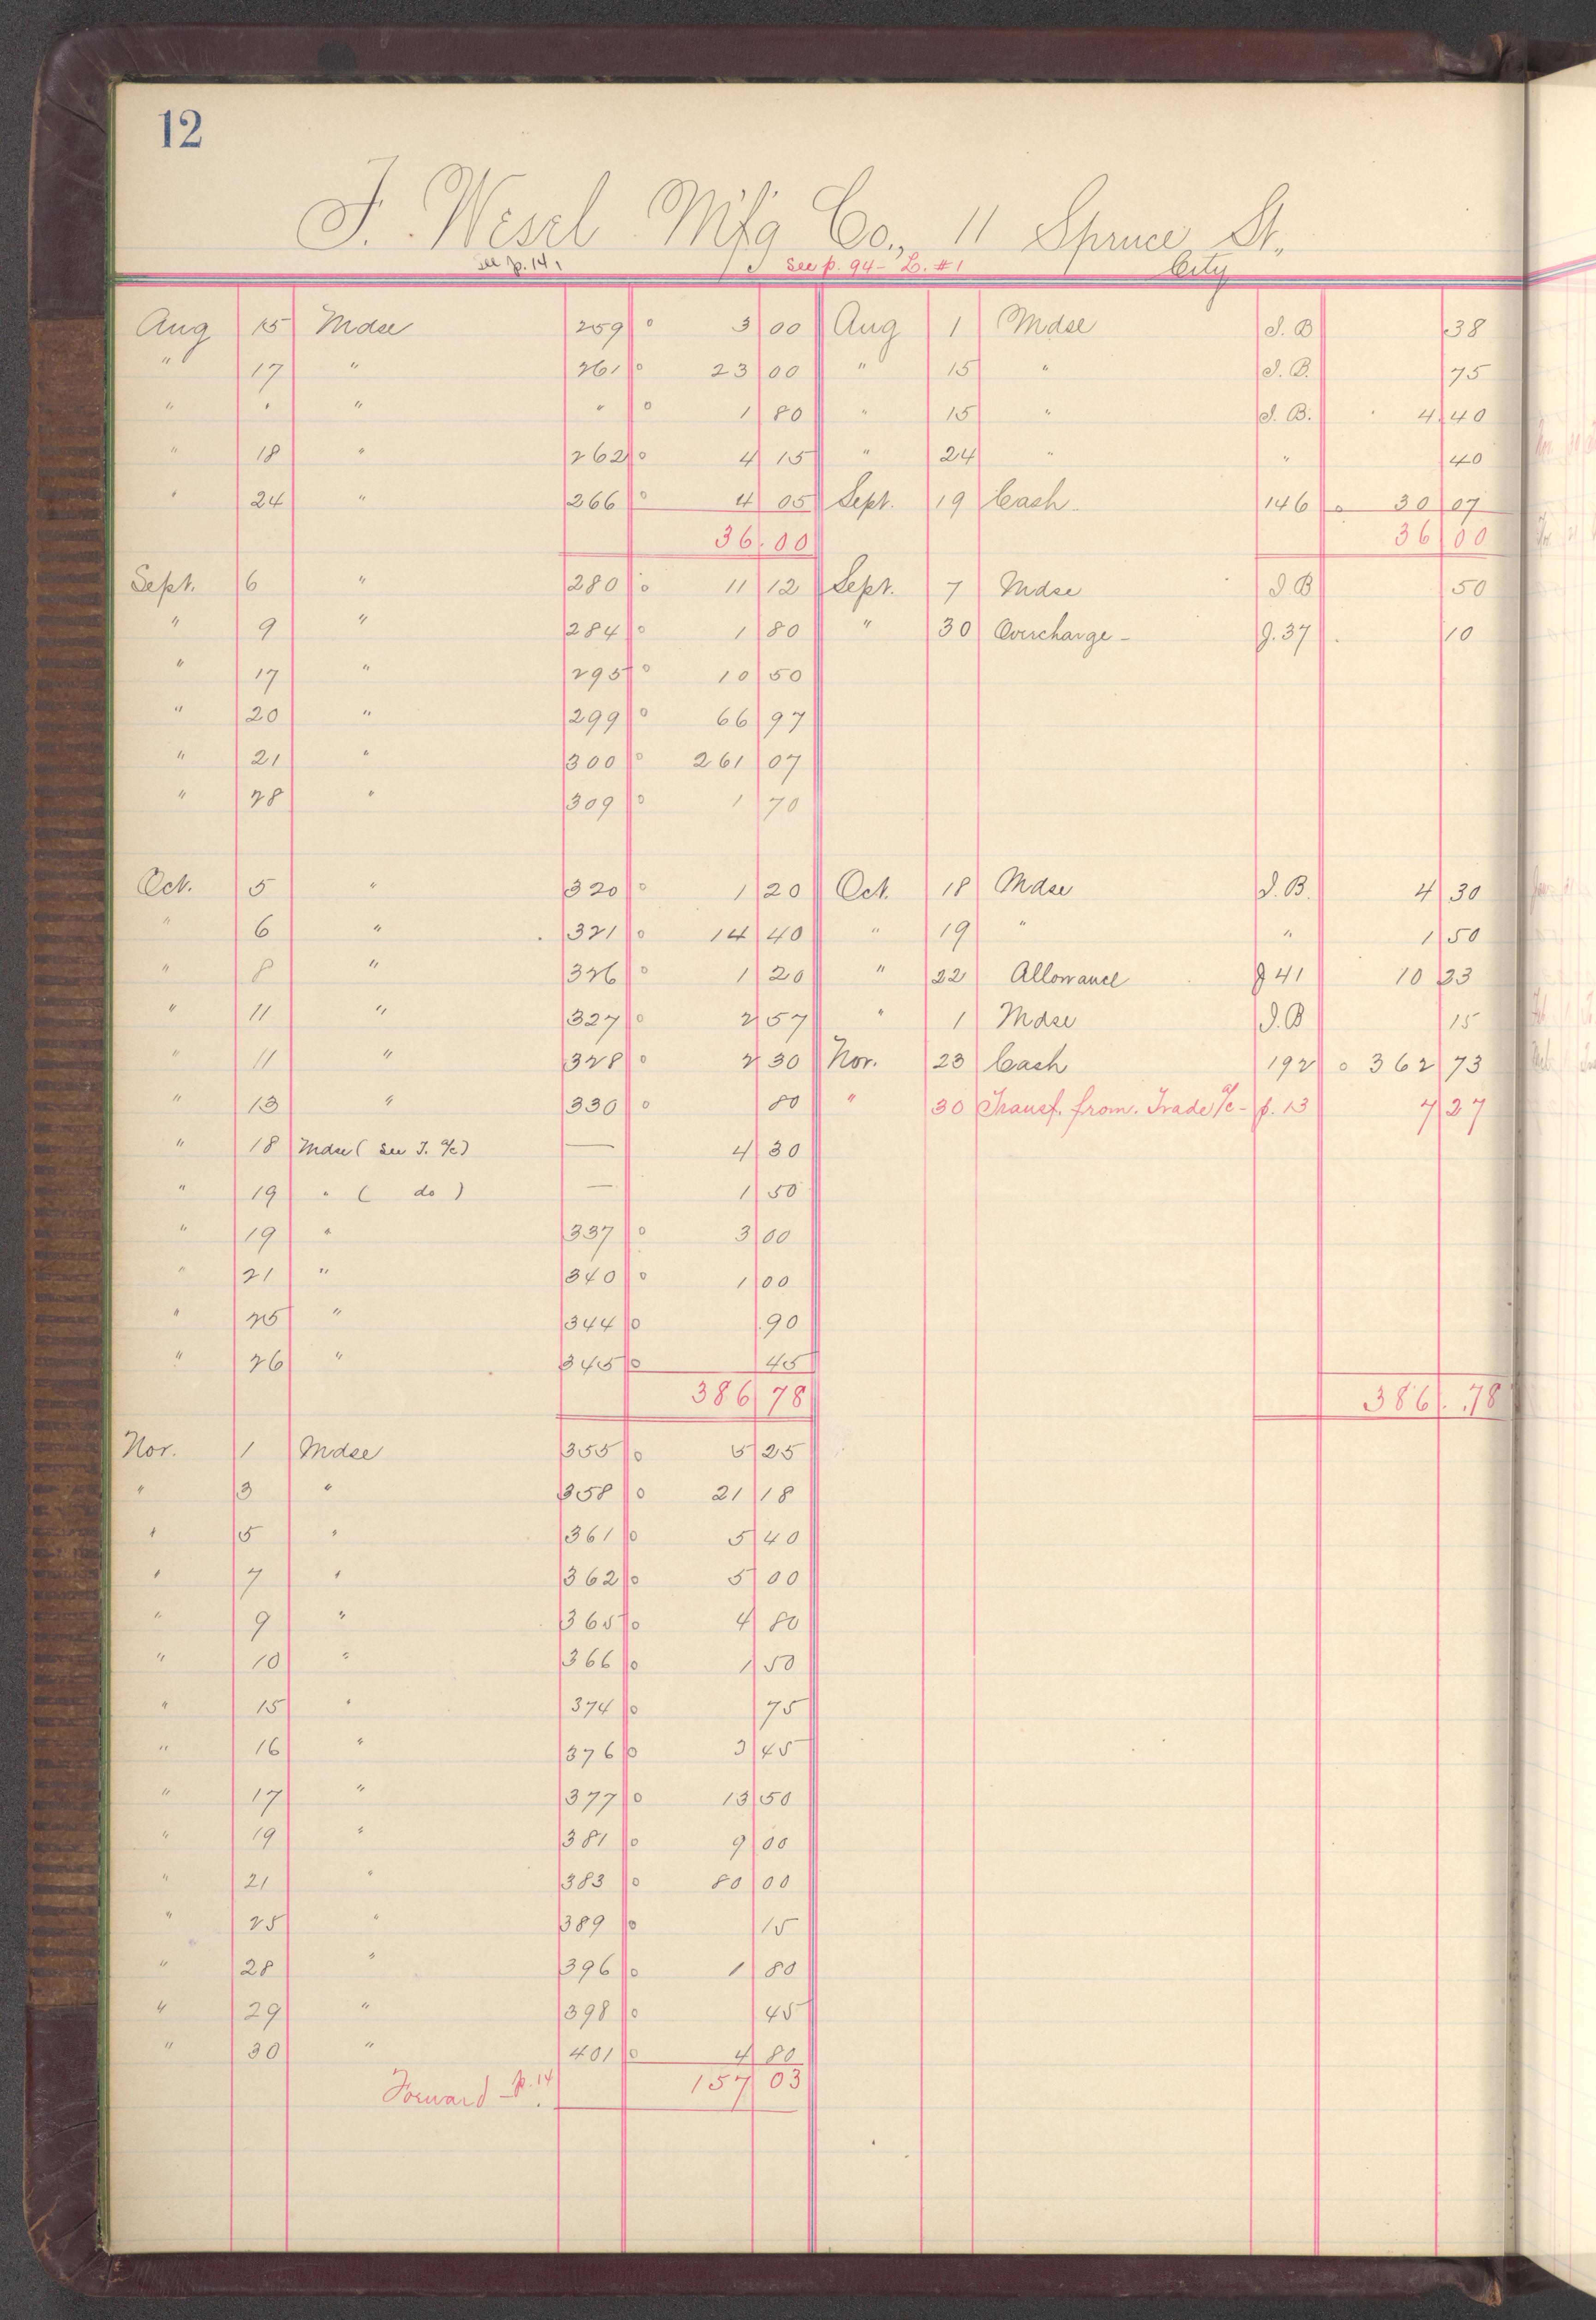 12
F. Wesel Mfg Co., 11 Spruce St.,
See p. 14, See p. 94 - L. #1 City
Aug 15 Mdse 259 0 3 00 Aug 1 Mdse J. B 38
" 17 " 261 0 23 00 " 15 " J. B. 75
" " " " 0 1 80 " 15 " J. B. 4 40
" 18 " 262 0 4 15 " 24 " " 40
" 24 " 266 0 4 05 Sept. 19 Cash 146 0 30 07
36.00 36 00
Sept. 6 " 280 0 11 12 Sept. 7 Mdse J B 50
" 9 " 284 0 1 80 " 30 Overcharge - J. 37 10
" 17 " 295 0 10 50
" 20 " 299 0 66 97
" 21 " 300 0 261 07
" 28 " 309 0 1 70
Oct. 5 " 320 0 1 20 Oct. 18 Mdse J. B. 4 30
" 6 " 321 0 14 40 " 19 " " 1 50
" 8 " 326 0 1 20 " 22 Allowance J 41 10 23
" 11 " 327 0 2 57 " 1 Mdse J. B 15
" 11 " 328 0 2 30 Nov. 23 Cash 192 0 362 73
" 13 " 330 0 80 " 30 Transf. from. Trade a/c - p. 13 7 27
" 18 Mdse ( see T. a/c) — 4 30
" 19 " ( do ) — 1 50
" 19 " 337 0 3 00
" 21 " 340 0 1 00
" 25 " 344 0 .90
" 26 " 345 0 45
386 78 386.78
Nov. 1 Mdse 355 0 5 25
" 3 " 358 0 21 18
" 5 " 361 0 5 40
" 7 " 362 0 5 00
" 9 " 365 0 4 80
" 10 " 366 0 1 50
" 15 " 374 0 75
" 16 " 376 0 3 45
" 17 " 377 0 13 50
" 19 " 381 0 9 00
" 21 " 383 0 80 00
" 25 " 389 0 15
" 28 " 396 0 1 80
" 29 " 398 0 45
" 30 " 401 0 4 80
Forward - p. 14 157 03